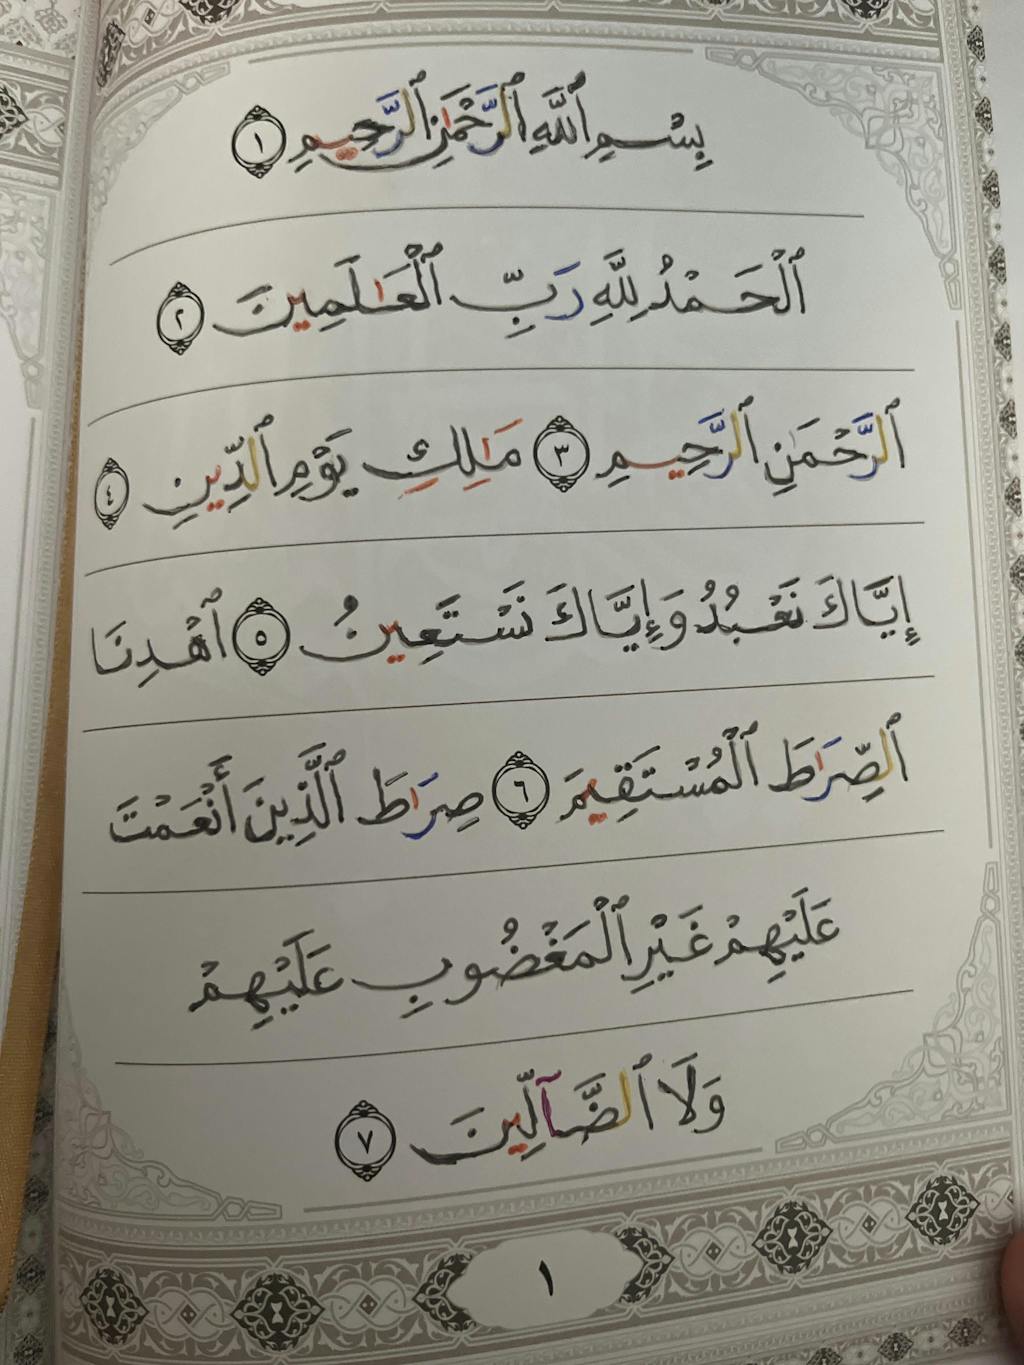 بِسْمِ ٱللَّهِ ٱلرَّحْمَٰنِ ٱلرَّحِيمِ ١
ٱلْحَمْدُ لِلَّهِ رَبِّ ٱلْعَٰلَمِينَ ٢
ٱلرَّحْمَٰنِ ٱلرَّحِيمِ ٣ مَٰلِكِ يَوْمِ ٱلدِّينِ ٤
إِيَّاكَ نَعْبُدُ وَإِيَّاكَ نَسْتَعِينُ ٥ ٱهْدِنَا
ٱلصِّرَٰطَ ٱلْمُسْتَقِيمَ ٦ صِرَٰطَ ٱلَّذِينَ أَنْعَمْتَ
عَلَيْهِمْ غَيْرِ ٱلْمَغْضُوبِ عَلَيْهِمْ
وَلَا ٱلضَّآلِّينَ ٧
١